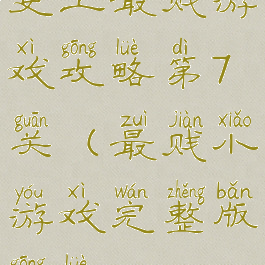 上最贱游
xì gōng lüè dì
戏攻略第7
guān zuì jiàn xiǎo
关（最贱小
yóu xì wán zhěng bǎn
游戏完整版
gōng lüè